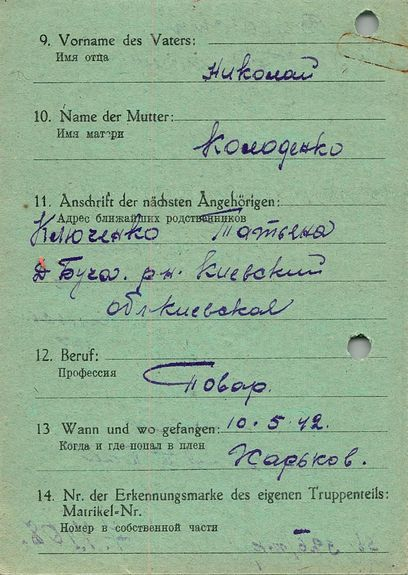 9. Vorname des Vaters:
Имя отца
Николай
10. Name der Mutter:
Имя матери
Колоденко
11. Anschrift der nächsten Angehörigen:
Адрес ближайших родственников
Ключенко Татьяна
д Буча. р-н. Киевский
обл киевская
12. Beruf:
Профессия
Повар.
13 Wann und wo gefangen: 10.5.42.
Когда и где попал в плен
Харьков.
14. Nr. der Erkennungsmarke des eigenen Truppenteils:
Matrikel-Nr.
Номер в собственной части